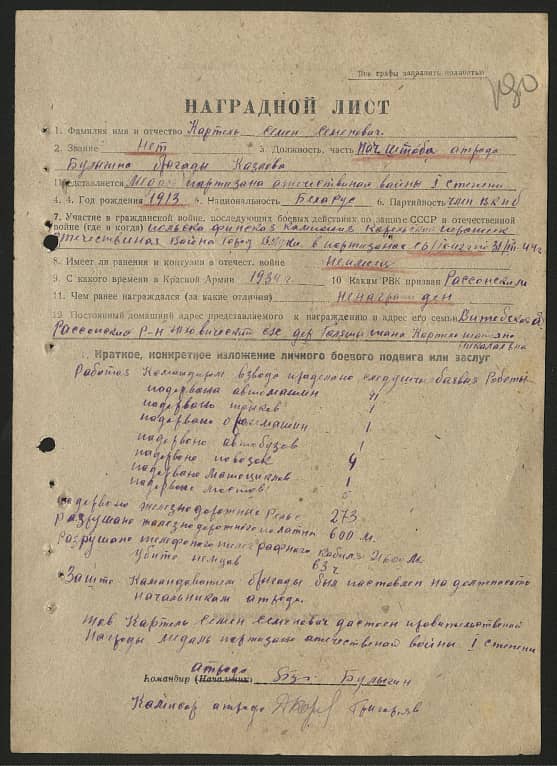 Все графы заполнять полностью
НАГРАДНОЙ ЛИСТ
1. Фамилия имя и отчество Картель Семен Семенович.
2. Звание нет 3. Должность, часть нач штаба атреда
Булыгина бригады Казлова
Представляется Медаль партизана атечественой войны I степени
4. 4. Год рождения 1913 5. Национальность Беларус 6. Партийность член ВКПб
7. Участие в гражданской войне, последующих боевых действиях по защите СССР и отечественной
войне (где и когда) польска финская кампания
атечественая война город в партизанах с
8. Имел ли ранения и контузии в отечест. войне неимеет
9. С какого времени в Красной Армии 1934 г 10 Каким РВК призван Рассонским
11. Чем ранее награждался (за какие отличия) ненагражден
12 Постоянный домашний адрес представляемого к награждению и адрес его семьи Витебской
Рассонский Р-н дер жана Картель
Николаевна
Краткое, конкретное изложение личного боевого подвига или заслуг
Работая Командиром взвода проделано следующие боевая Работы
подарвана автомашин
подарвано 1
подарвано 1
подарвано автобузов 1
подарвано повозок 4
подарвано матациклов 1
подарвано мостов
подарвано железнодорожные Рельс 273
разрушано железнодорожного палатна 600 м.
Разрушано телефонного кабиля м.
Убито немцов
Зашто Командованием бригады был паставлен на должность
начальником атреда.
тов Картель Семен Семенович дастоен правительственой
Награды медаль партизана атечественой войны I степени
атреда
Командир (Начальник) Булыгин
Камисар атреда Григорьяв